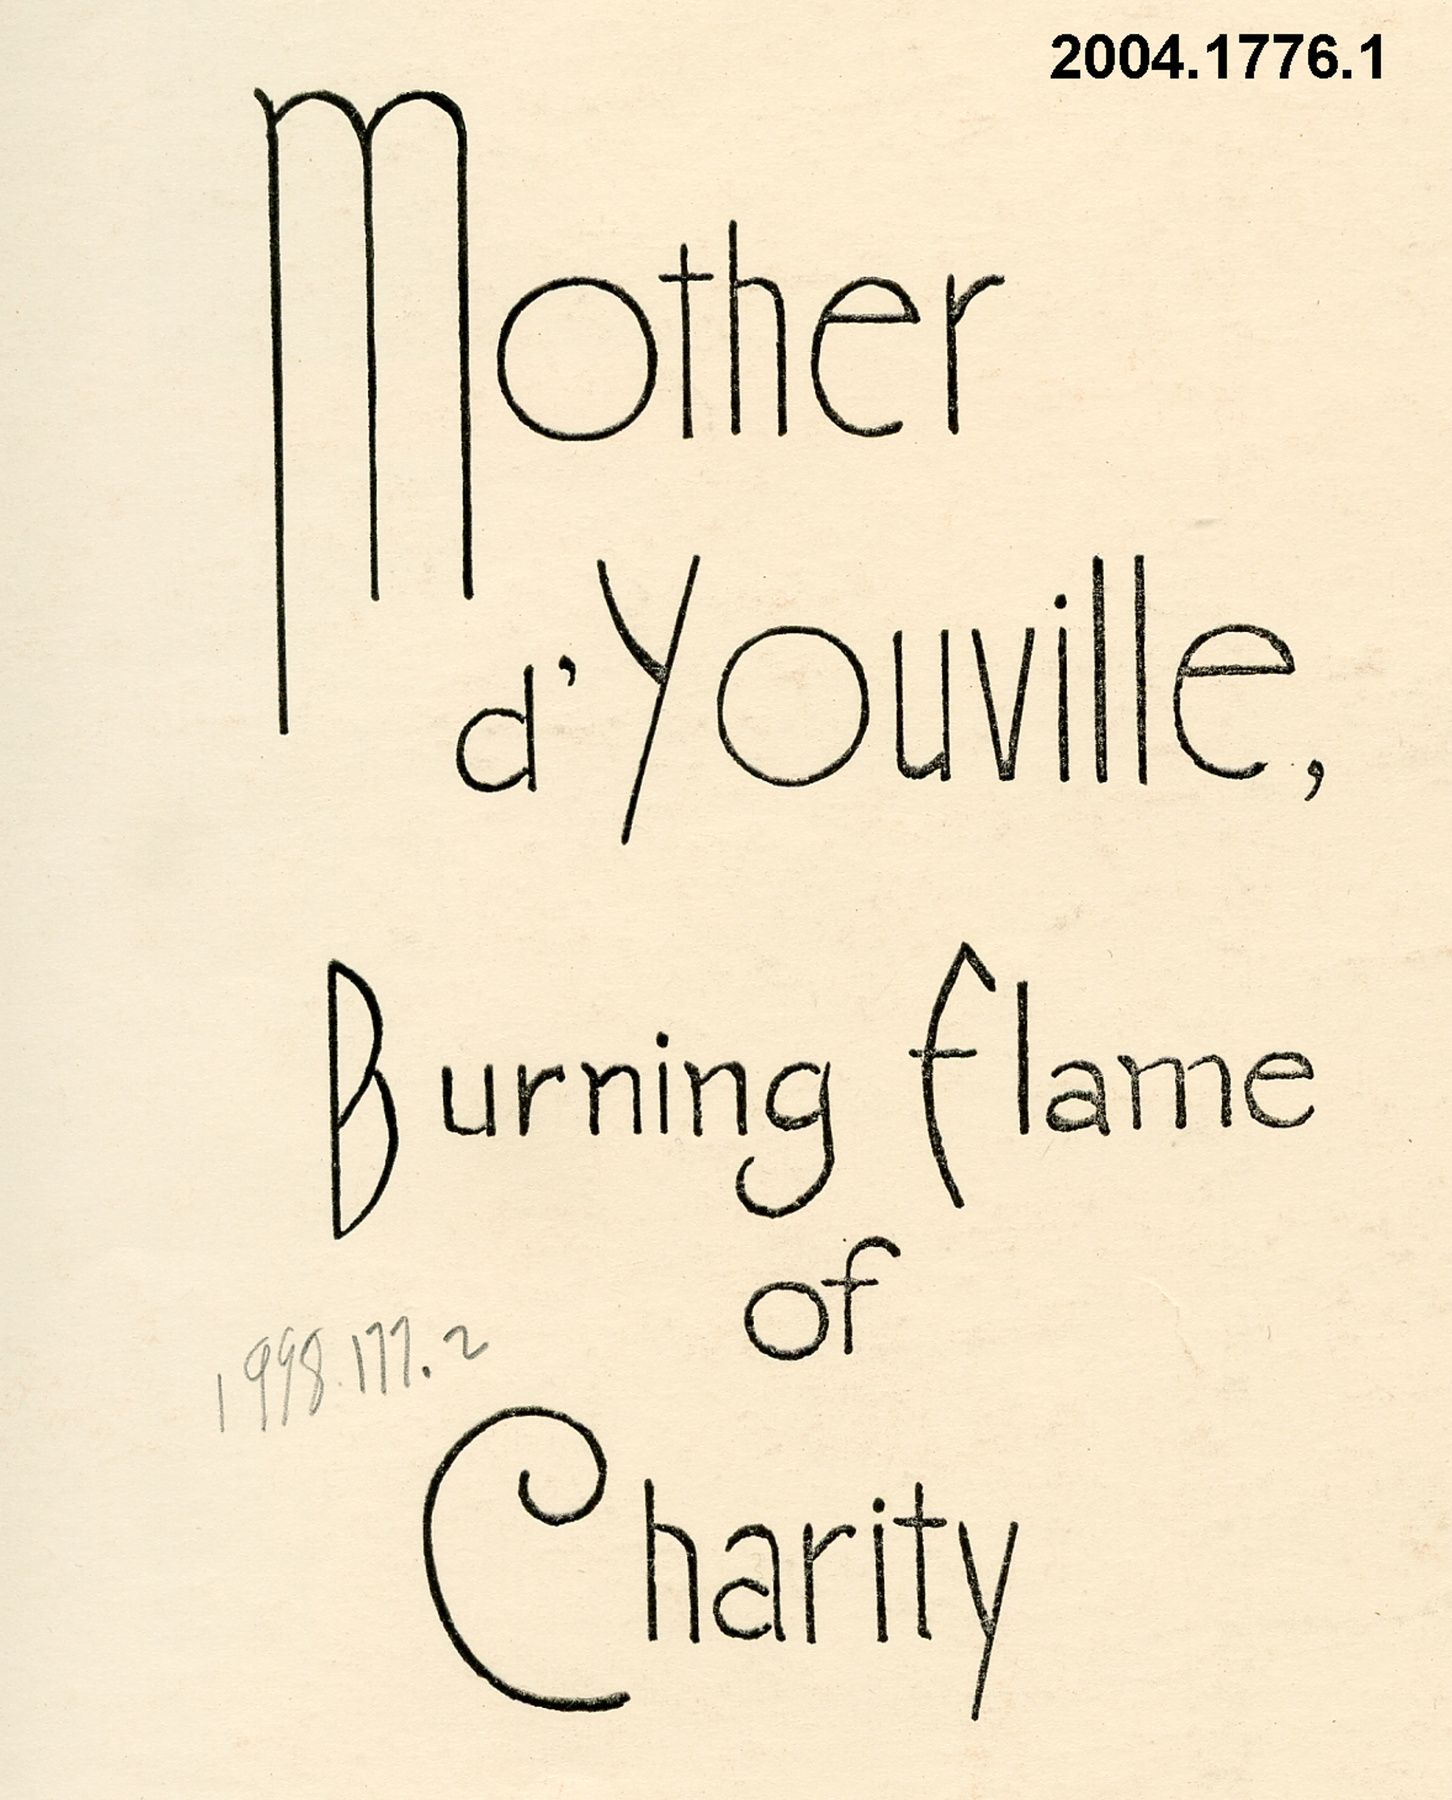 2004.1776.1
Mother
d'Youville,
Burning flame
of
1998.177.2
Charity